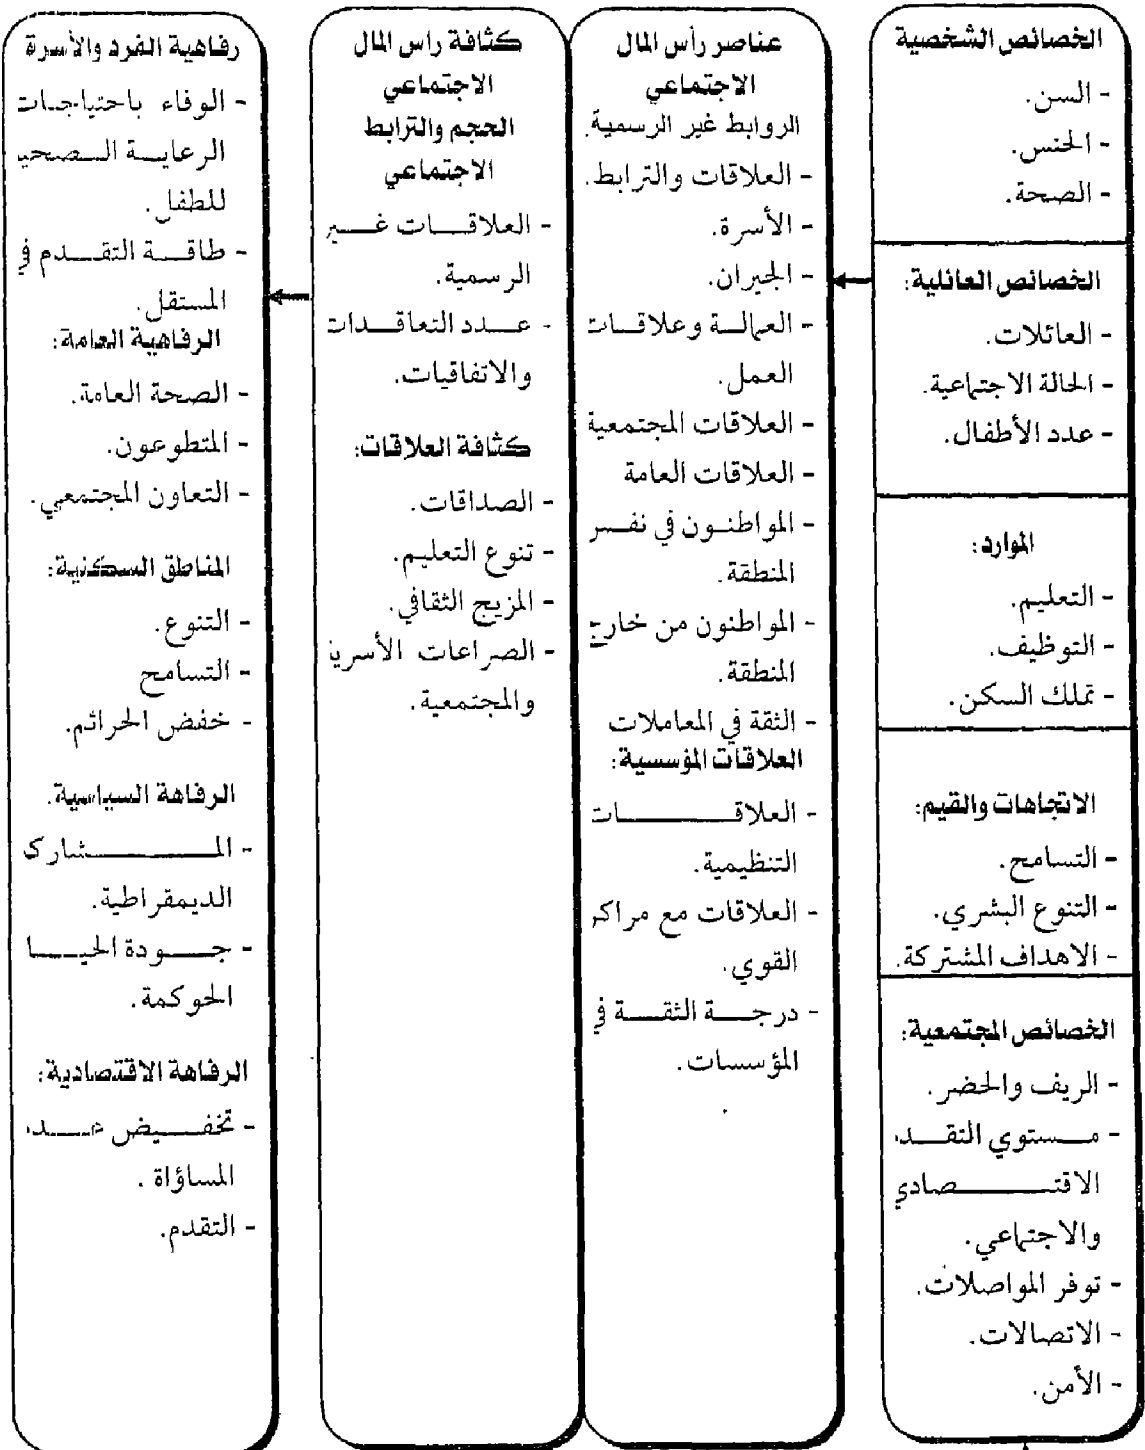 الخصائص الشخصية
- السن.
- الجنس.
- الصحة.
الخصائص العائلية:
- العائلات.
- الحالة الاجتماعية.
- عدد الأطفال.
الموارد:
- التعليم.
- التوظيف.
- تملك السكن.
الاتجاهات والقيم:
- التسامح.
- التنوع البشري.
- الاهداف المشتركة.
الخصائص المجتمعية:
- الريف والحضر.
- مستوي التقد
الاقتصادي
والاجتماعي.
- توفر المواصلات.
- الاتصالات.
- الأمن.
عناصر رأس المال
الاجتماعي
الروابط غير الرسمية.
- العلاقات والترابط.
- الأسرة.
- الجيران.
- العمالة وعلاقات
العمل.
- العلاقات المجتمعية
- العلاقات العامة
- المواطنون في نفس
المنطقة.
- المواطنون من خارج
المنطقة.
- الثقة في المعاملات
العلاقات المؤسسية:
- العلاقات
التنظيمية.
- العلاقات مع مراكز
القوي.
- درجة الثقة في
المؤسسات.
كثافة راس المال
الاجتماعي
الحجم والترابط
الاجتماعي
- العلاقات غير
الرسمية.
- عدد التعاقدات
والاتفاقيات.
كثافة العلاقات:
- الصداقات.
- تنوع التعليم.
- المزيج الثقافي.
- الصراعات الأسرية
والمجتمعية.
رفاهية الفرد والأسرة
- الوفاء باحتياجات
الرعاية الصحي
للطفل.
- طاقة التقدم في
المستقل.
الرفاهية العامة:
- الصحة العامة.
- المتطوعون.
- التعاون المجتمعي.
المناطق السكنية:
- التنوع.
- التسامح
- خفض الجرائم.
الرفاهة السياسية.
- المشارك
الديمقراطية.
- جودة الحيا
الحوكمة.
الرفاهة الاقتصادية:
- تخفيض عد
المساؤاة .
- التقدم.